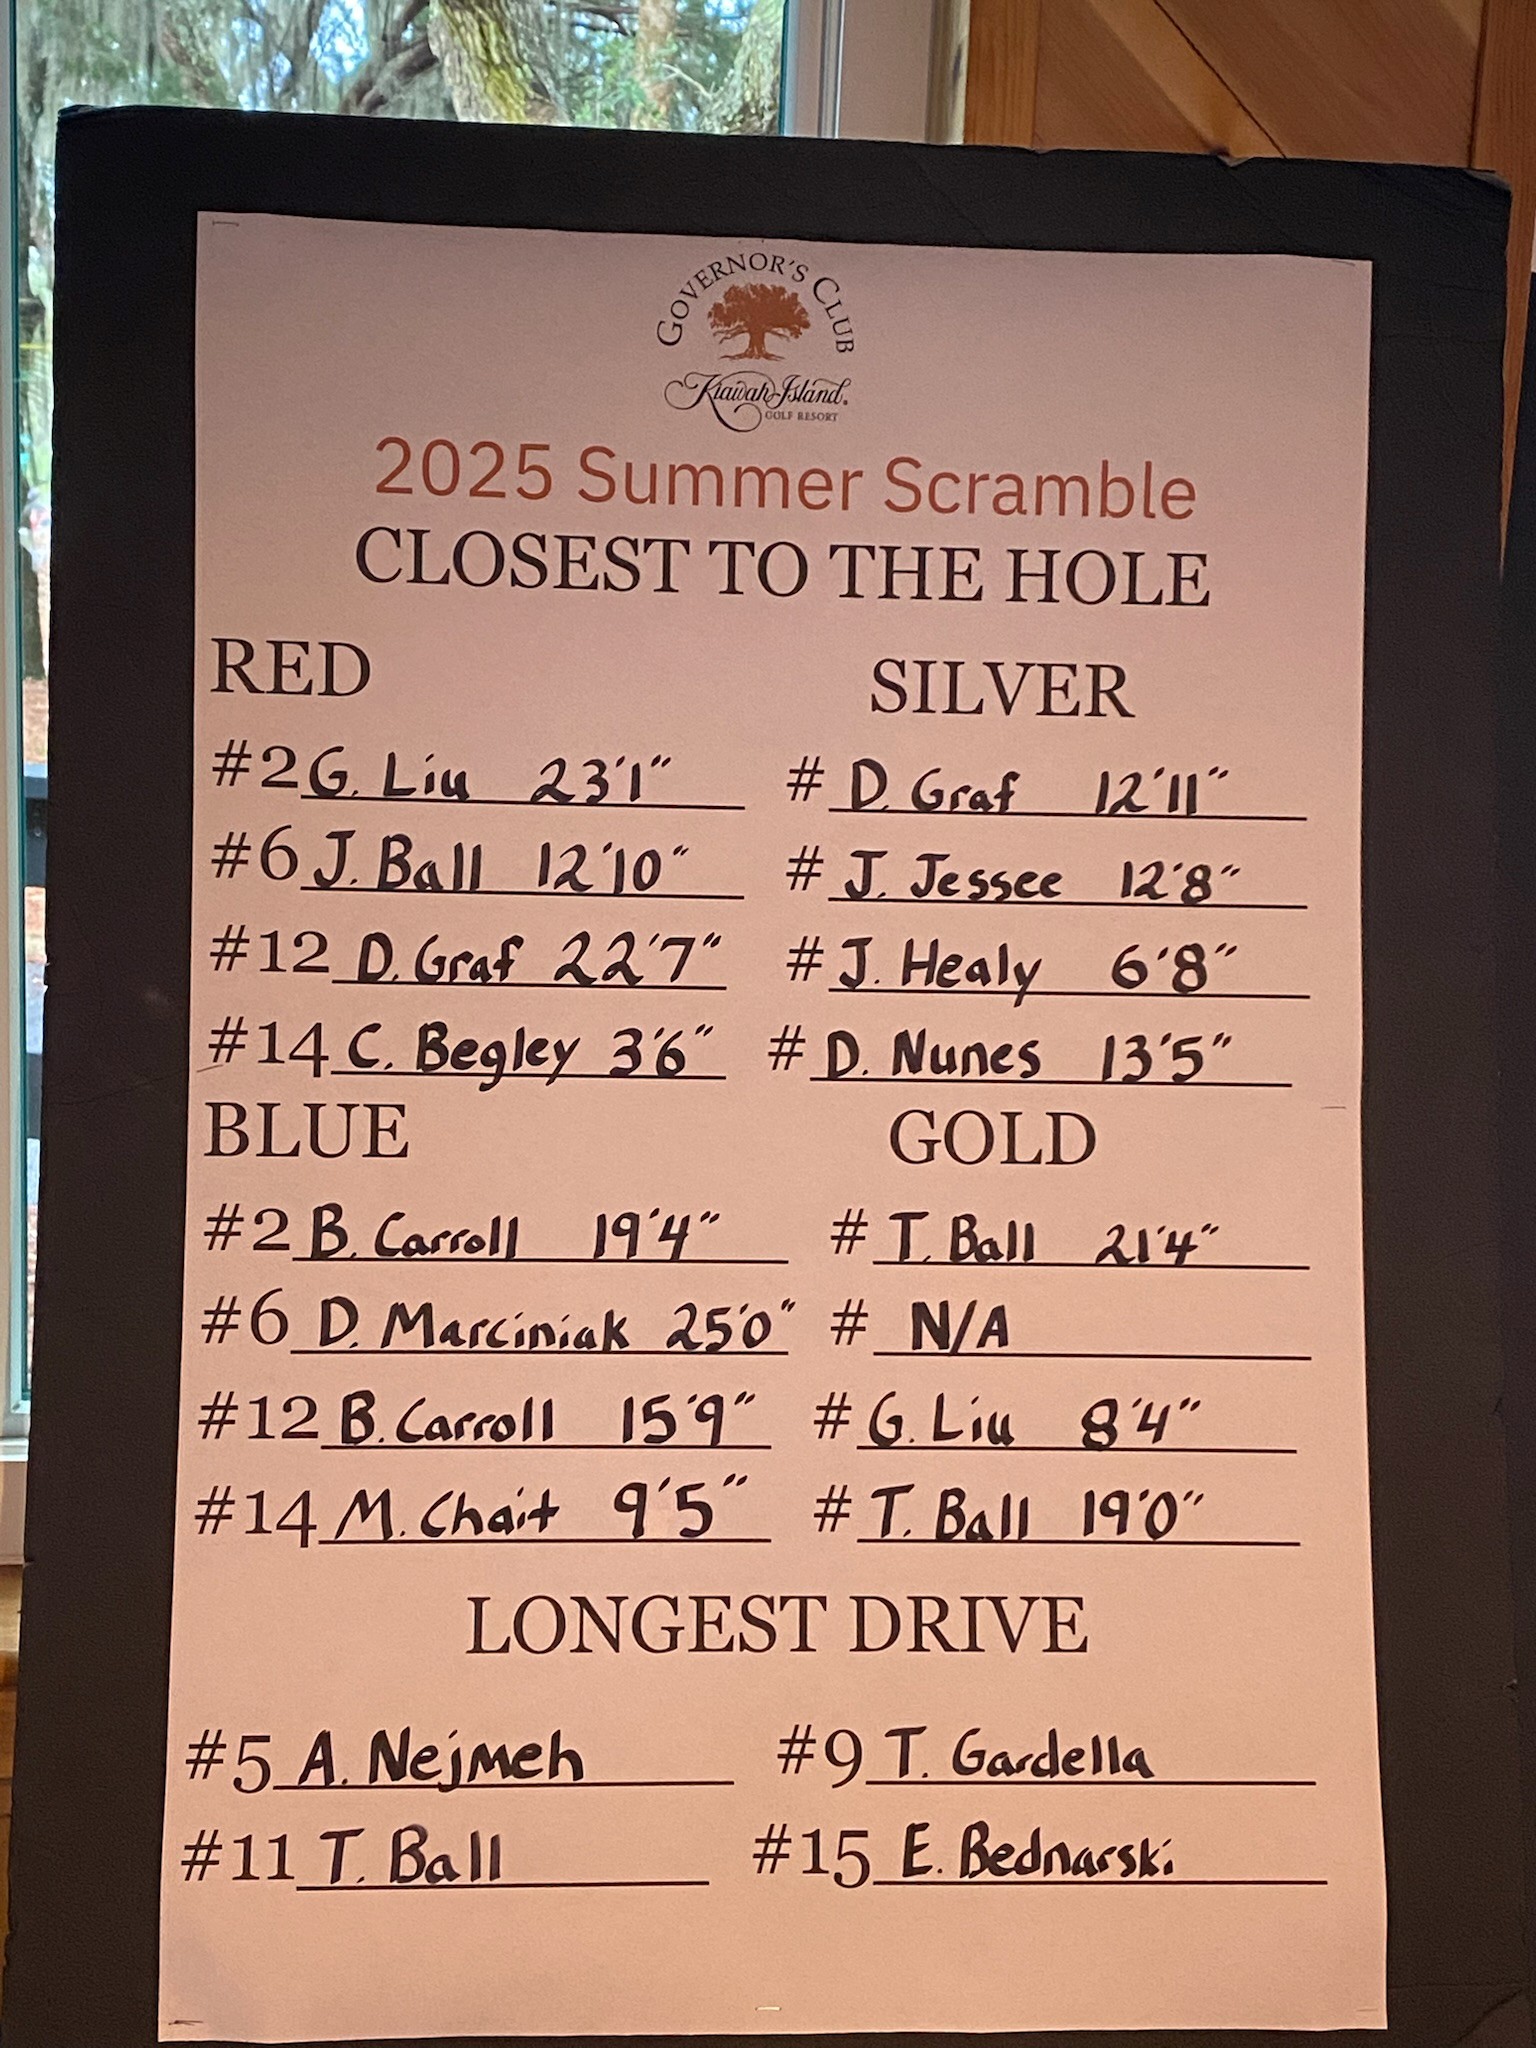 GOVERNOR'S CLUB
Kiawah Island
GOLF RESORT
2025 Summer Scramble
CLOSEST TO THE HOLE
RED
#2 G. Liu 23'1"
#6 J. Ball 12'10"
#12 D. Graf 22'7"
#14 C. Begley 3'6"
SILVER
# D. Graf 12'11"
# J. Jessee 12'8"
# J. Healy 6'8"
# D. Nunes 13'5"
BLUE
#2 B. Carroll 19'4"
#6 D. Marciniak 25'0"
#12 B. Carroll 15'9"
#14 M. Chait 9'5"
GOLD
# T. Ball 21'4"
# N/A
# G. Liu 8'4"
# T. Ball 19'0"
LONGEST DRIVE
#5 A. Nejmeh
#9 T. Gardella
#11 T. Ball
#15 E. Bednarski